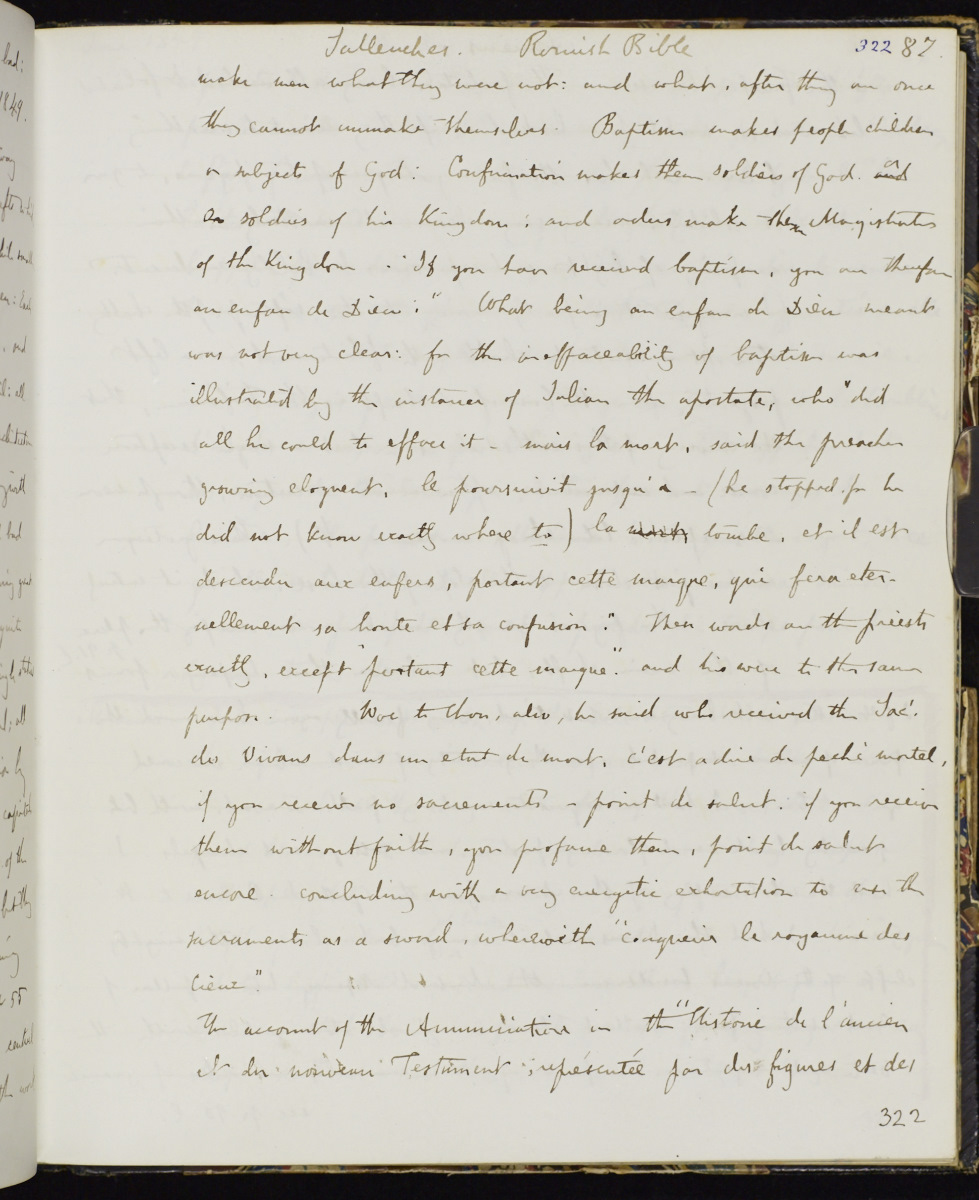 Sallenches. Romish Bible 322 87.
make men what they were not: and what, after they are once
they cannot unmake themselves. Baptism makes people children
or subjects of God: Confirmation makes them soldiers of God. and
soldiers of his Kingdom: and orders make them Magistrates
of the Kingdom. "If you have received baptism, you are therefore
an enfan de Dieu:" What being an enfan de Dieu meant
was not very clear: for the ineffaceability of baptism was
illustrated by the instance of Julian the apostate, who "did
all he could to efface it - mais la mort, said the preacher
growing eloquent, le poursuivit jusqu'a - (he stopped for he
did not know exactly where to) la tombe, et il est
descendu aux enfers, portant cette marque, qui fera eter-
nellement sa honte et sa confusion." These words are the priests
exactly, except "portant cette marque." and his were to the same
purpose. Woe to thou, also, he said who received the Sac.
des Vivans dans un etat de mort, c'est a dire de peché mortel,
if you receive no sacrements - point de salut. if you receive
them without faith, you profane them, point de salut
encore. concluding with a very energetic exhortation to use the
sacraments as a sword, wherewith "conquerir le royaume des
cieux".
The account of the Annunciation in the "Histoire de l'ancien
et du nouveau Testament, représentée par des figures et des
322